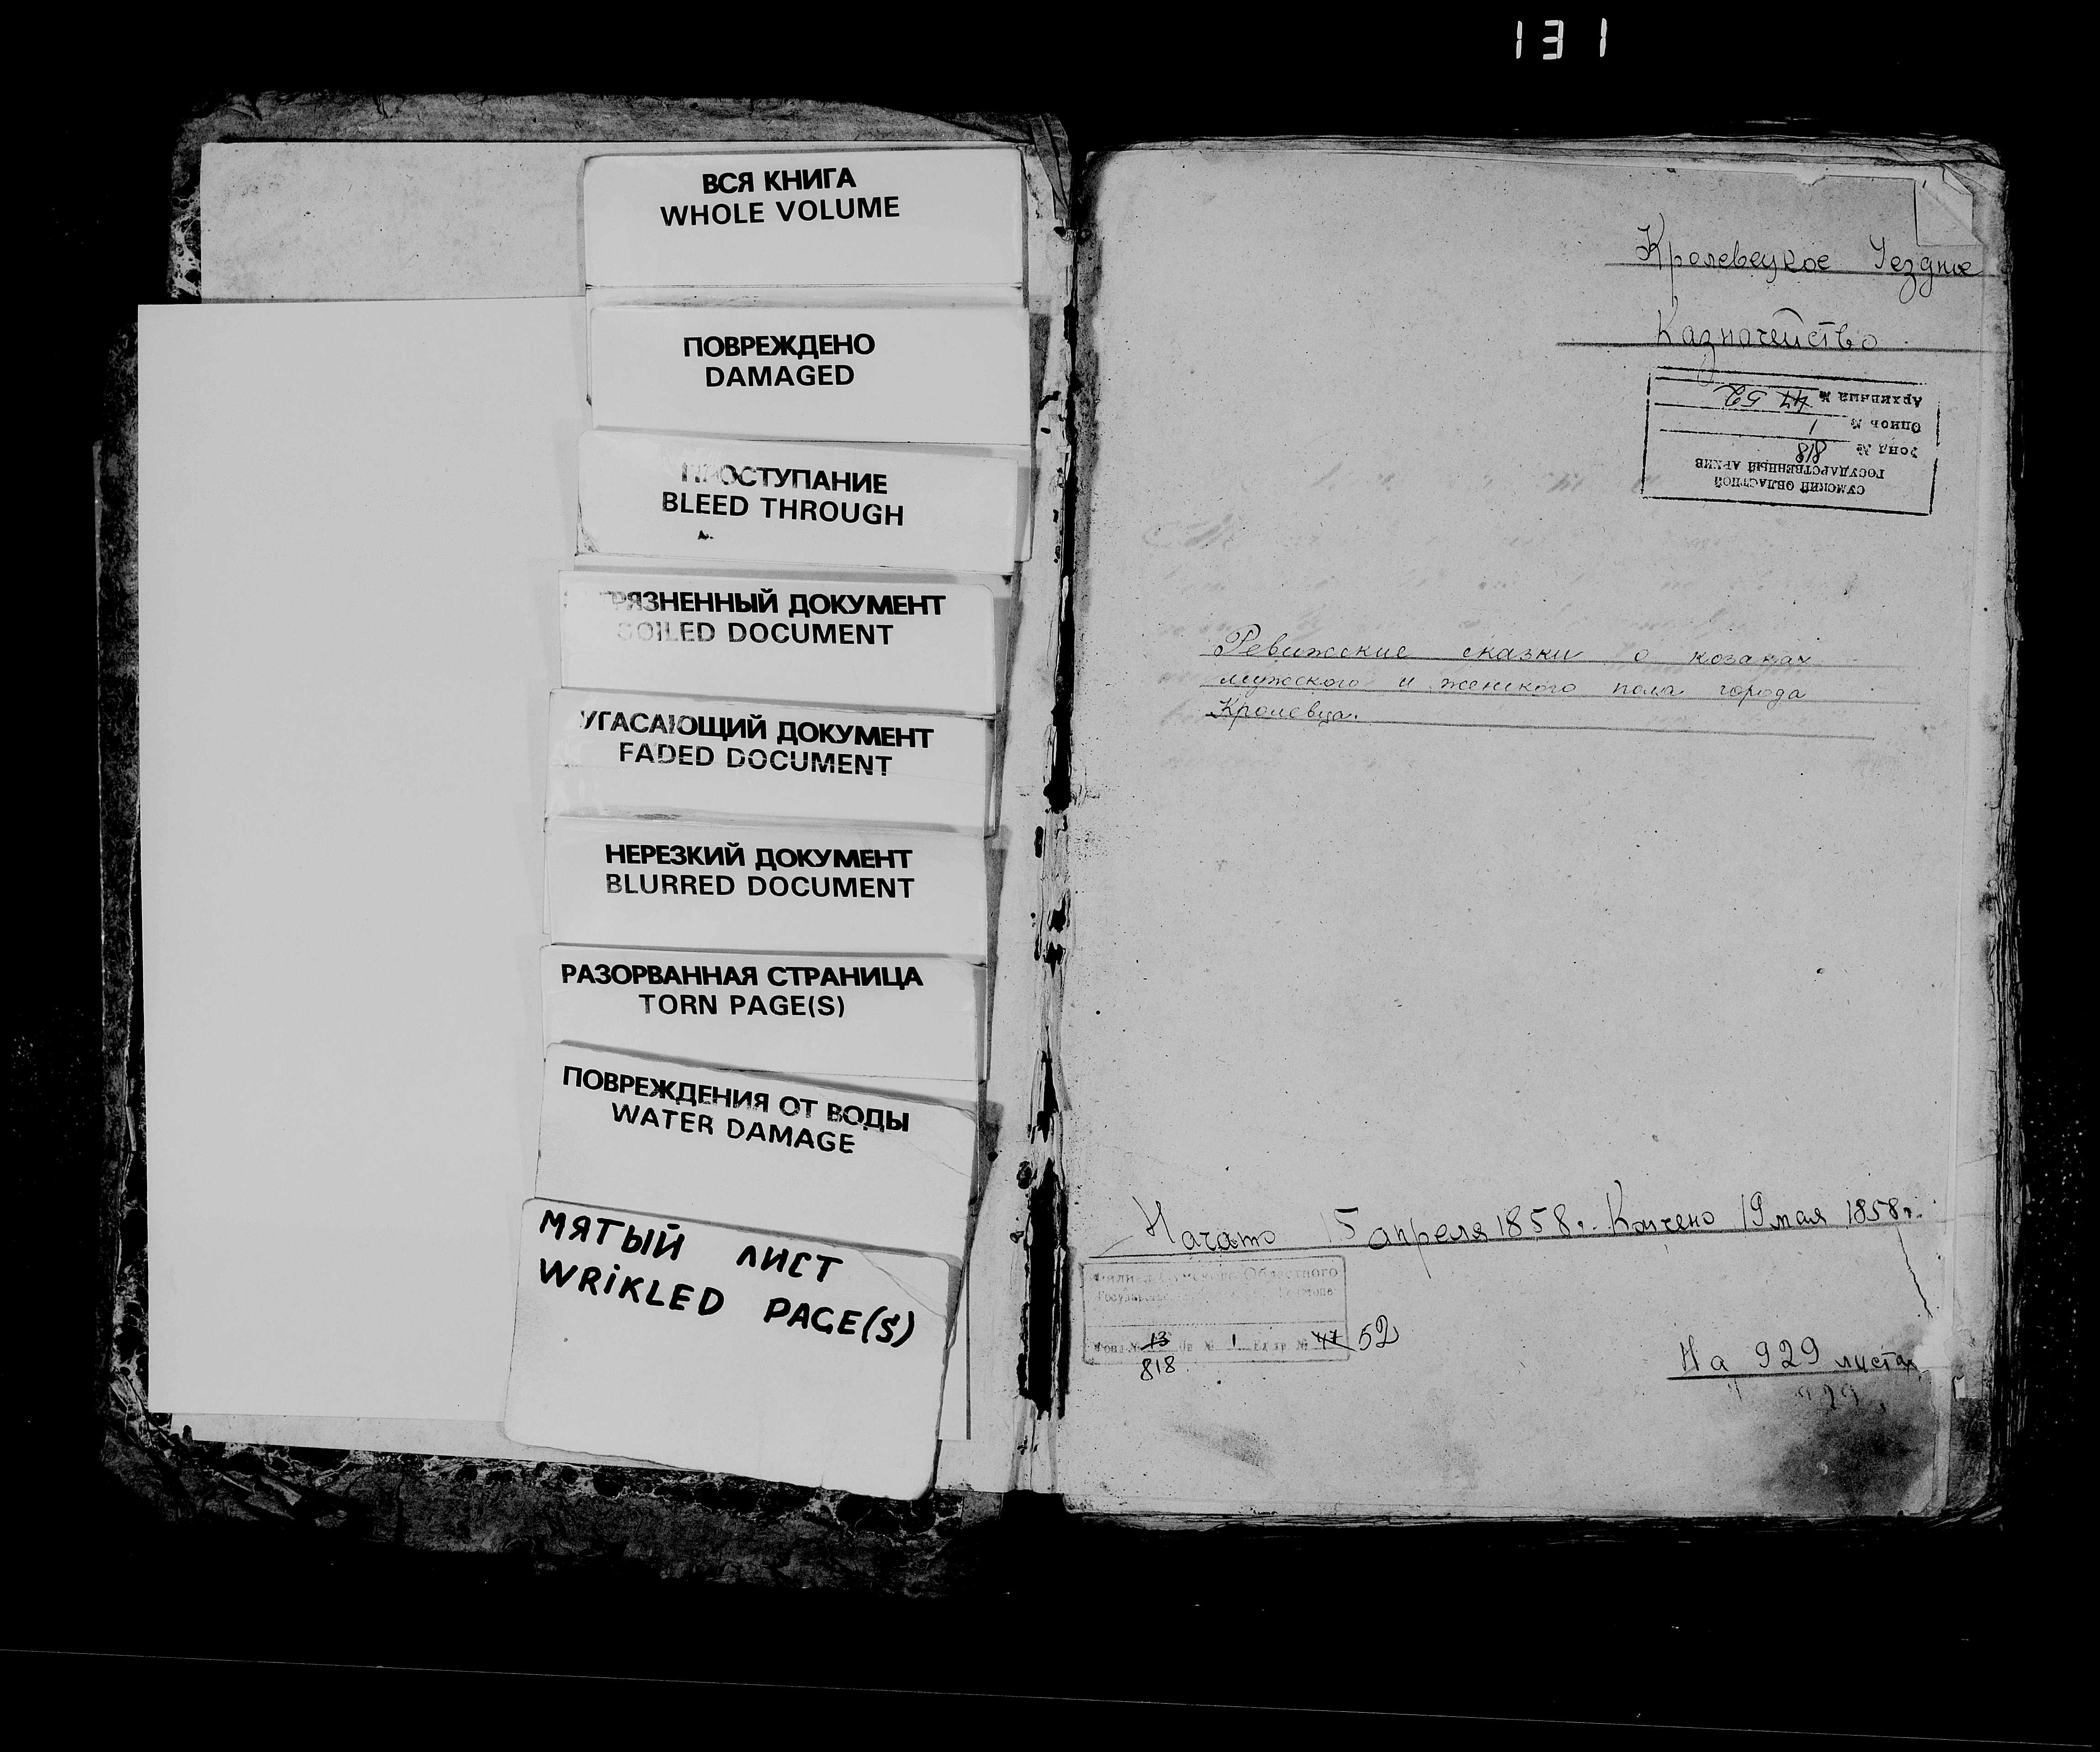 131
ВСЯ КНИГА
WHOLE VOLUME
ПОВРЕЖДЕНО
DAMAGED
ПРОСТУПАНИЕ
BLEED THROUGH
ГРЯЗНЕННЫЙ ДОКУМЕНТ
SOILED DOCUMENT
УГАСАЮЩИЙ ДОКУМЕНТ
FADED DOCUMENT
НЕРЕЗКИЙ ДОКУМЕНТ
BLURRED DOCUMENT
РАЗОРВАННАЯ СТРАНИЦА
TORN PAGE(S)
ПОВРЕЖДЕНИЯ ОТ ВОДЫ
WATER DAMAGE
МЯТЫЙ ЛИСТ
WRIKLED PAGE(S)
Кролевецкое Уездное
Казначейство
СУМСКИЙ ОБЛАСТНОЙ
ГОСУДАРСТВЕННЫЙ АРХИВ
Фонд № 818
Опись № 1
Архивный № 47 52
Ревижские сказки о козаках
мужского и женского пола города
Кролевца.
Начато 15 апреля 1858г. Кончено 19 мая 1858г.
Филиал Сумского Областного
Фонд № 13 Оп № 1 Ед хр № 47 52
818
На 929 листах
929